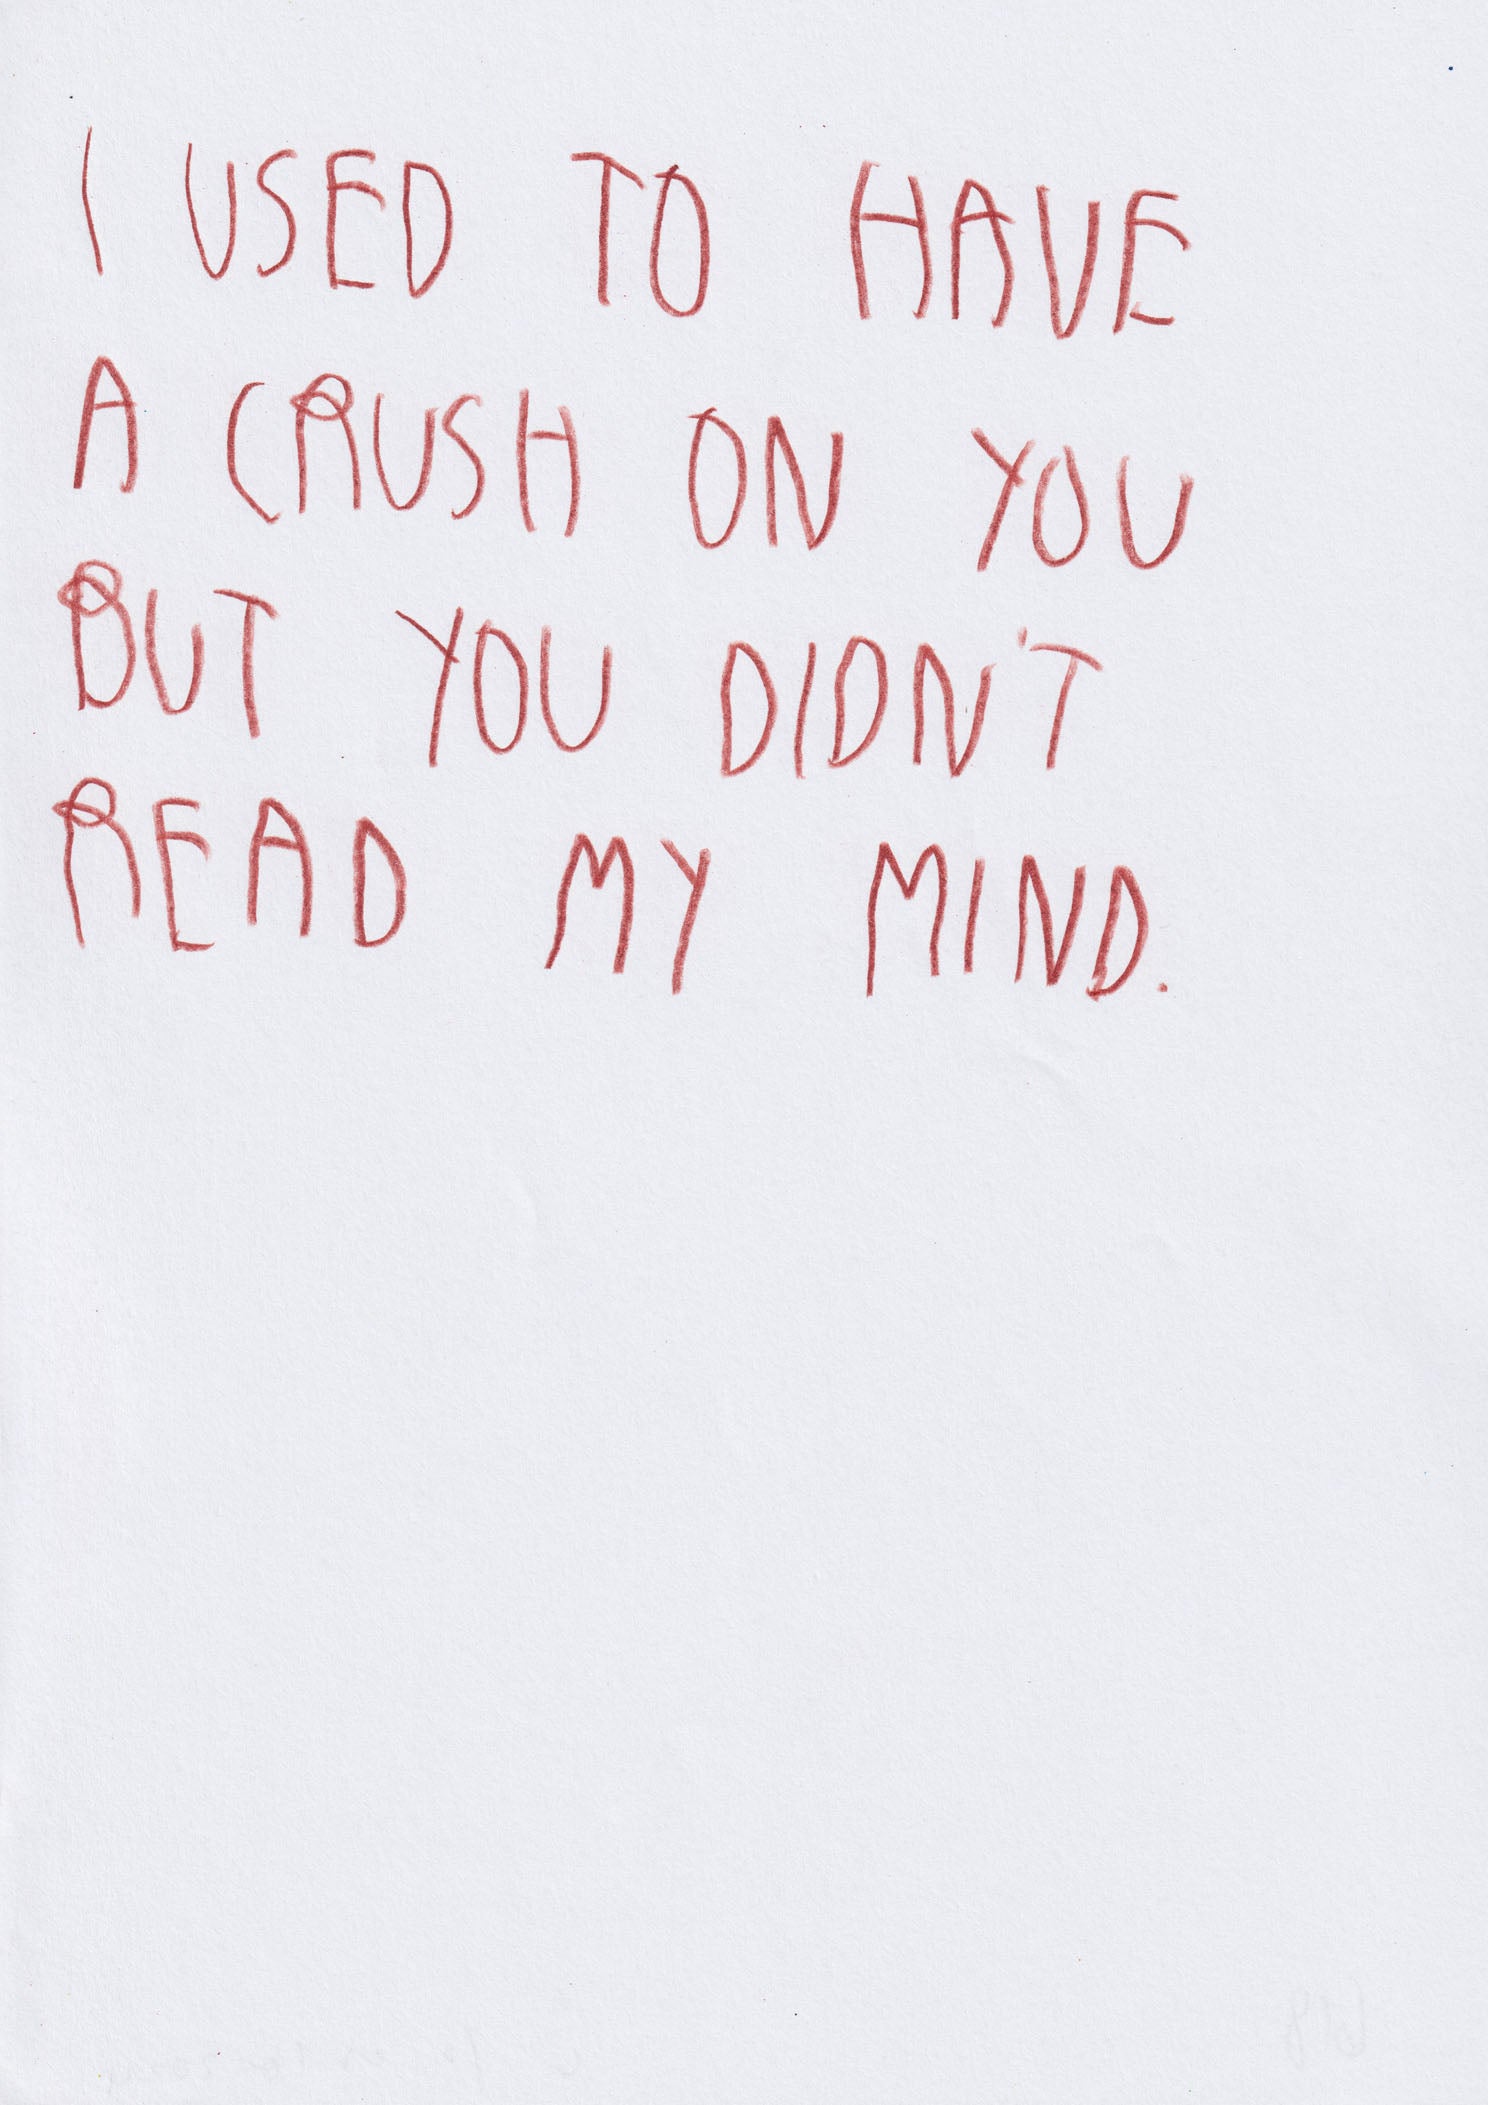 I USED TO HAVE
A CRUSH ON YOU
BUT YOU DIDN'T
READ MY MIND.